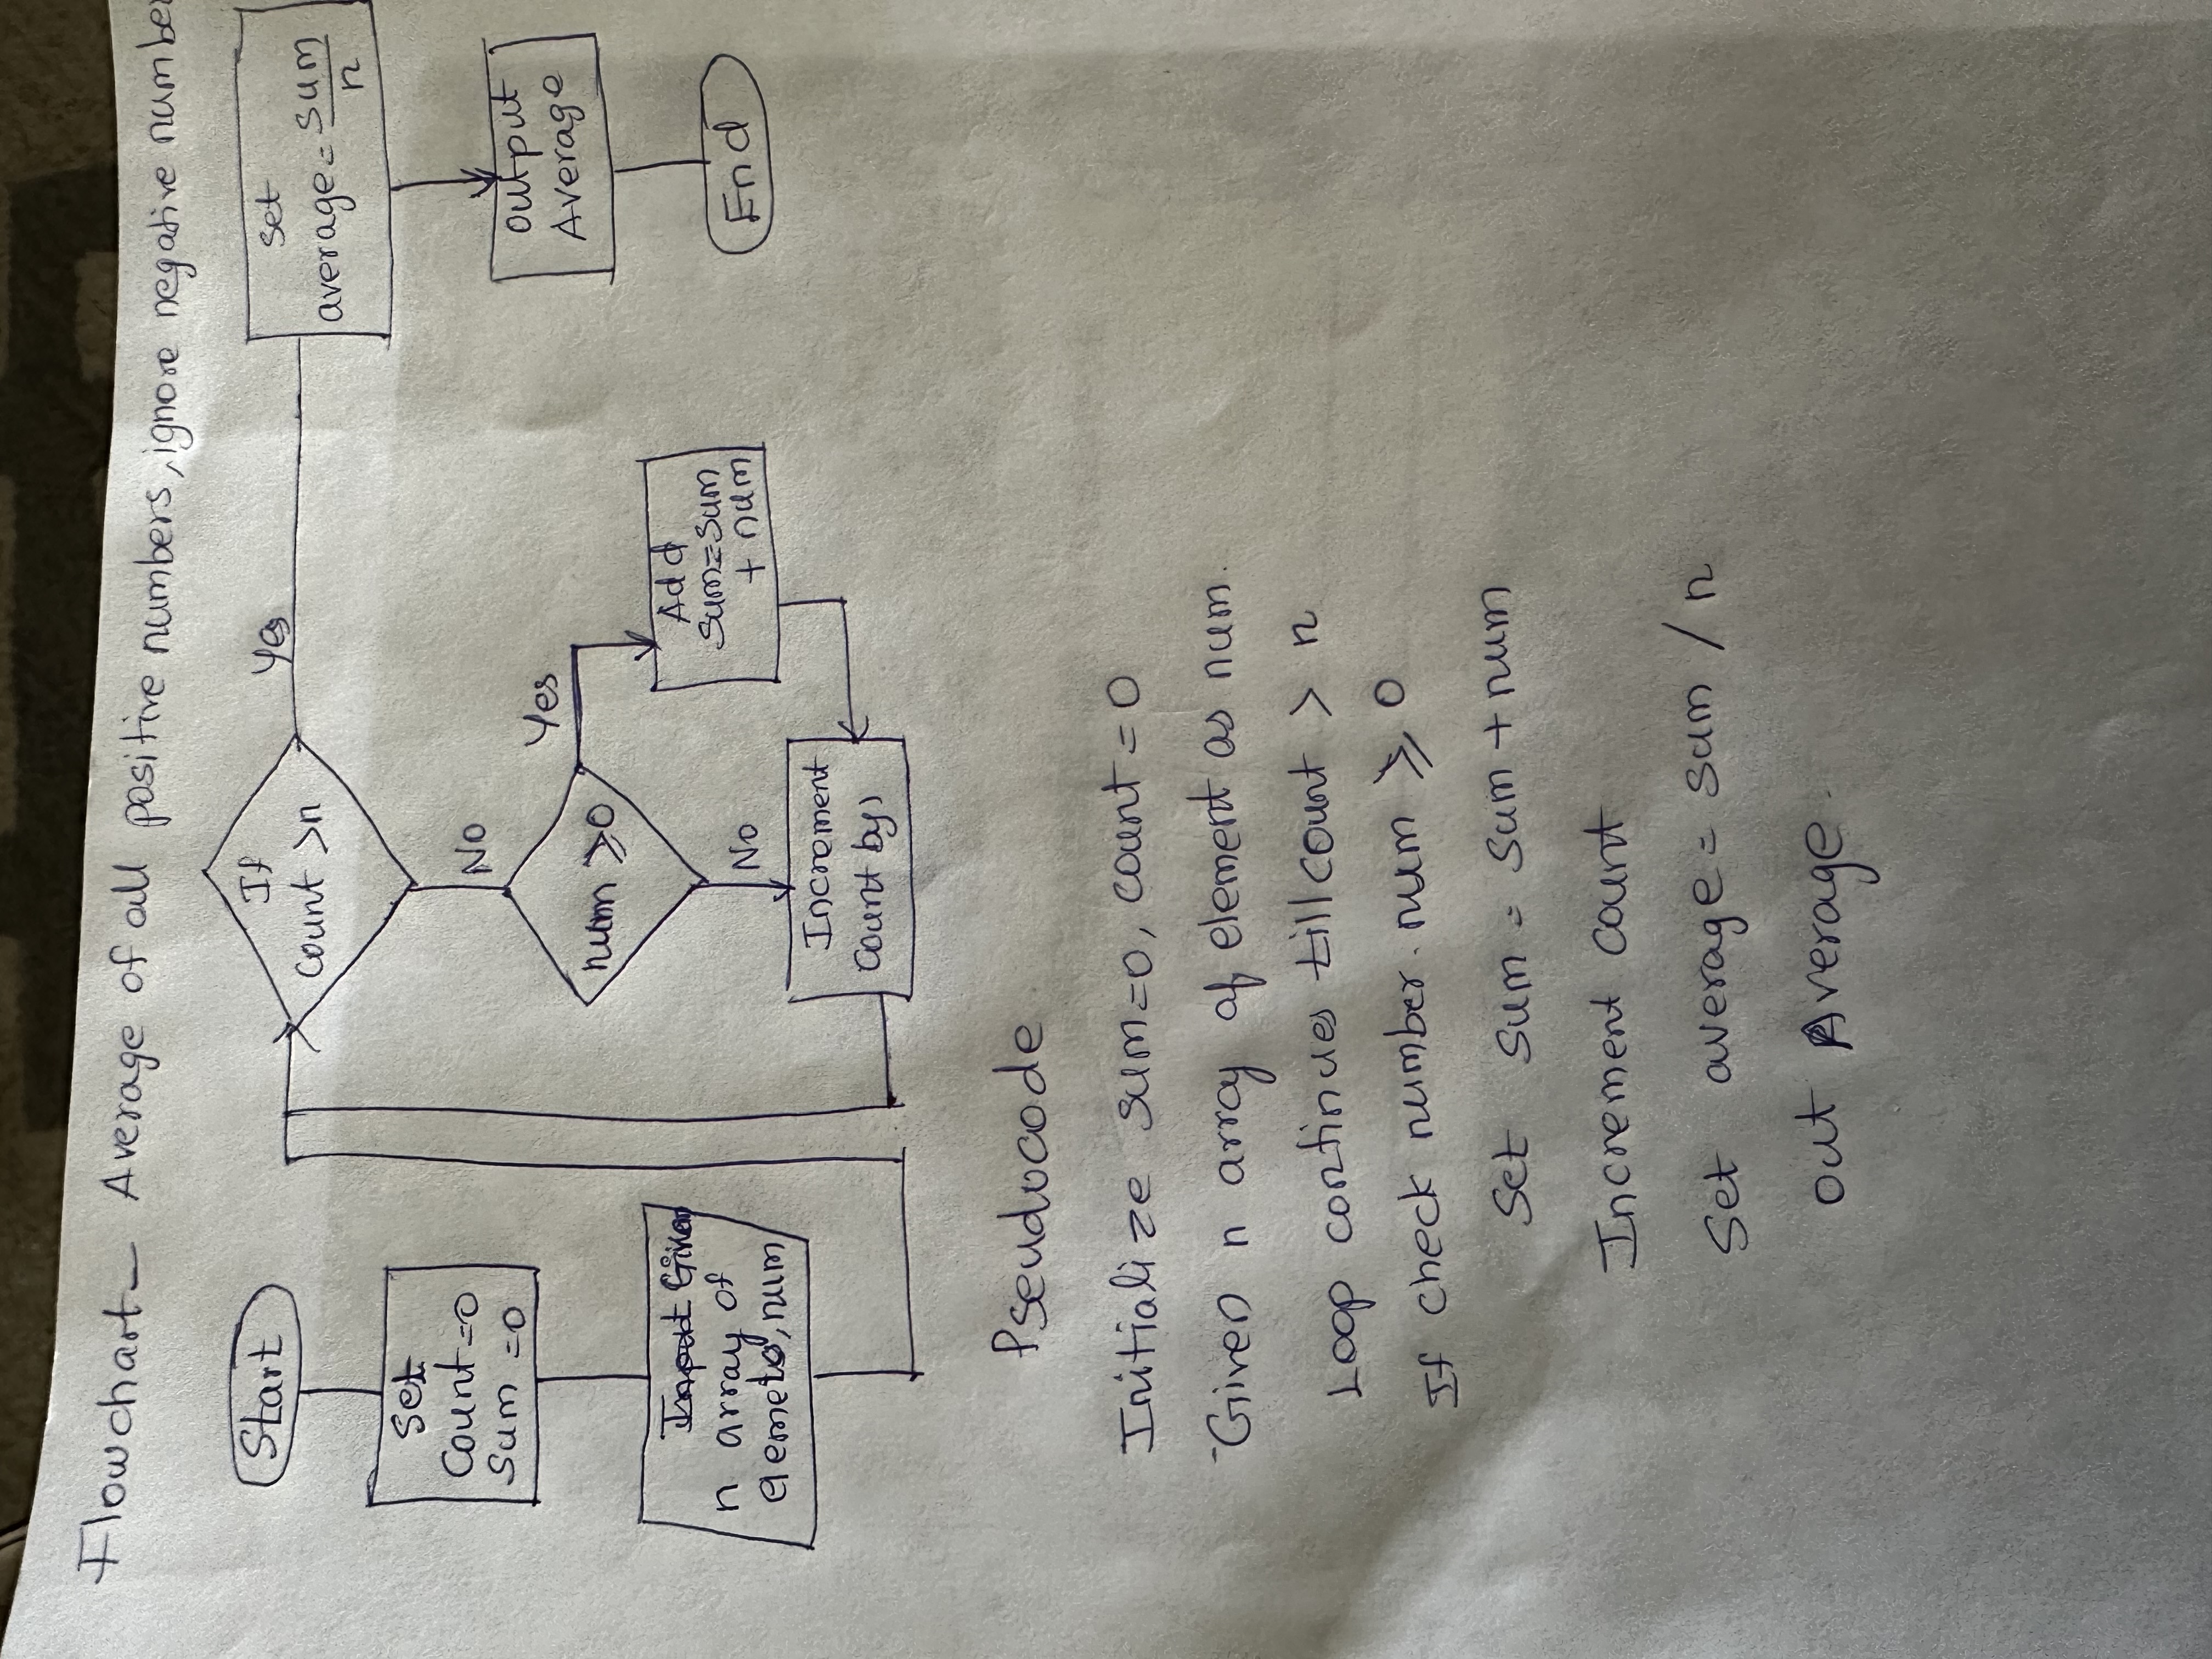 Flowchart - Average of all positive numbers, ignore negative number
Start
Set
Count=0
Sum =0
Input Given
n array of
elemets, num
If
count >n
Yes
No
num ≥0
Yes
No
Add
sum=sum
+ num
Increment
Count by 1
Set
average = sum
n
output
Average
End
Pseudocode
Initialize sum=0, count=0
Given n array of element as num.
Loop continues till count > n
If check number. num ≥ 0
Set sum = sum + num
Increment count
Set average = sum / n
out Average.